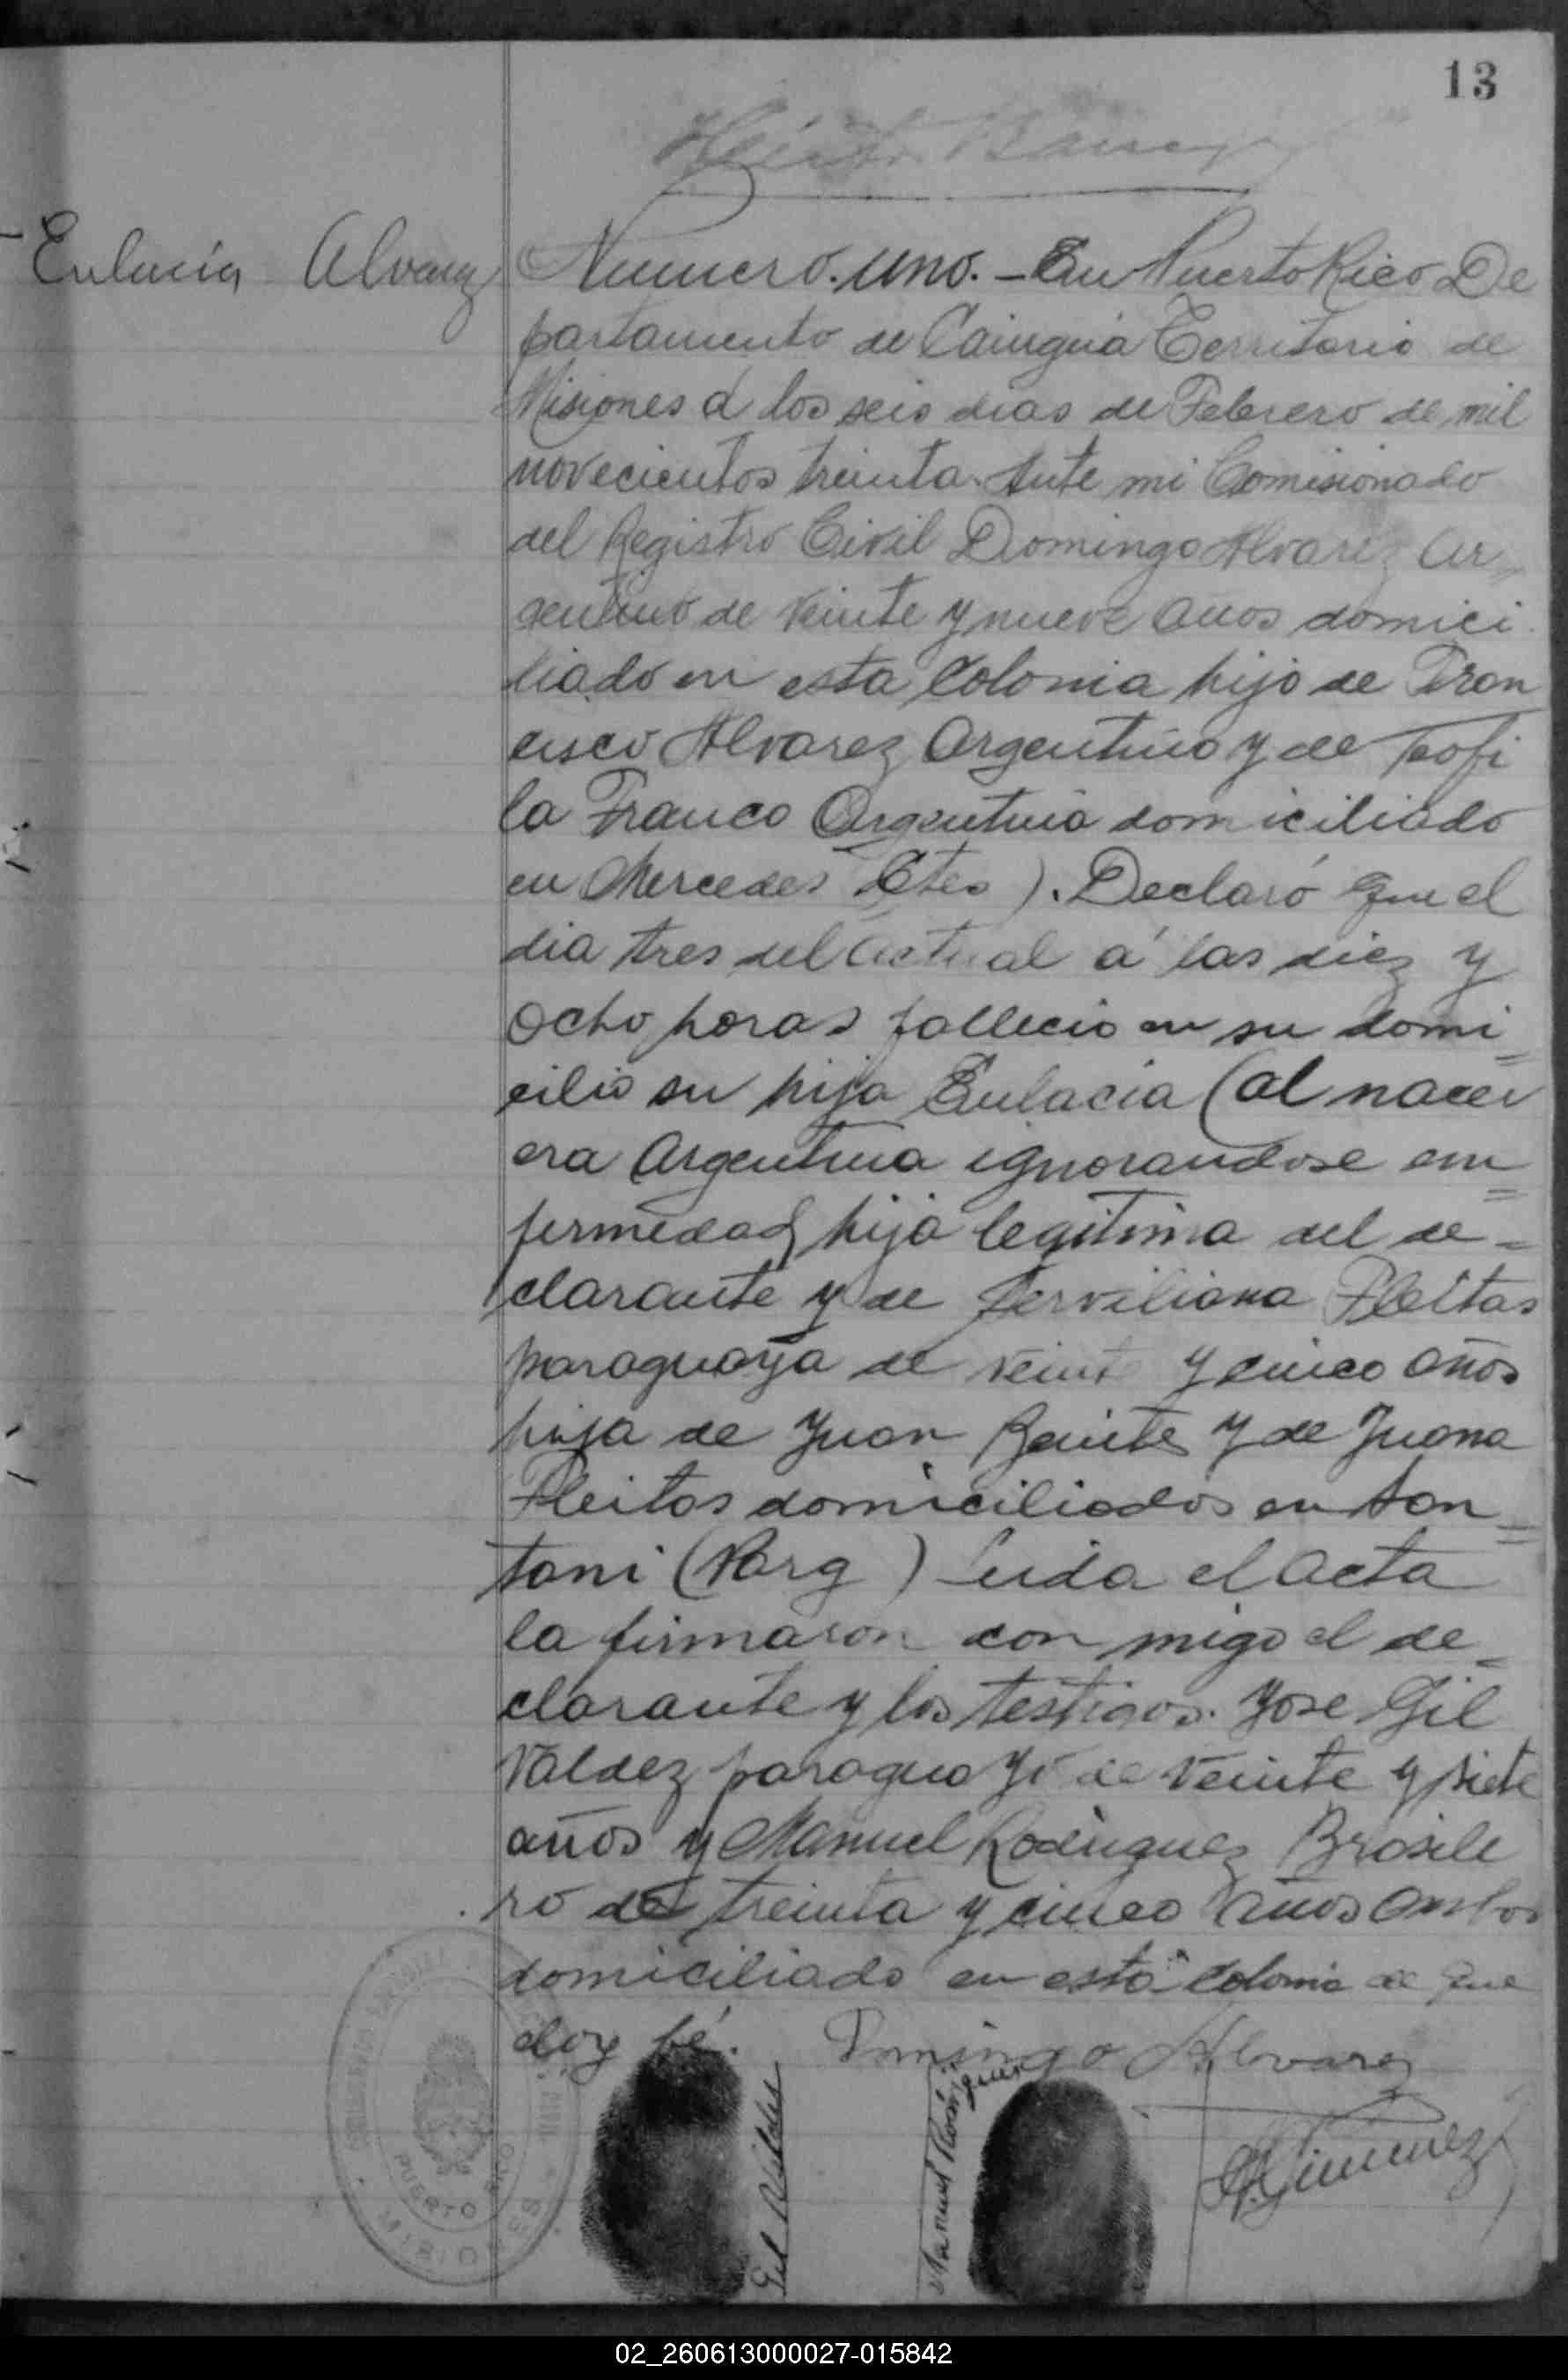 13
Eulacia Alvarez
Numero. uno. - En Puerto Rico De
partamento de Cainguá Territorio de
Misiones á los seis dias de Febrero de mil
novecientos treinta. Ante mi Comisionado
del Registro Civil Domingo Alvarez Ar
gentino de veinte y nueve años domici
liado en esta Colonia hijo de Fran
cisco Alvarez Argentino y de Teofi
la Franco Argentina domiciliado
en Mercedes Ctes ). Declaró que el
dia tres del actual á las diez y
ocho horas fallecio en su domi
cilio su hija Eulacia (al nacer
era Argentina ignorandose em
fermedad hija legitima del de
clarante y de Serviliana Fleitas
paraguaya de veinte y cinco años
hija de Juan Benites y de Juana
Fleitas domiciliados en
(Parg ) Leida el acta
la firmaron con migo el de
clarante y los testigos. Jose Gil
Valdez paraguayo de veinte y siete
años y Manuel Rodriguez Brasile
ro de treinta y cinco años ambos
domiciliado en esta Colonia de que
doy fé. Domingo Alvarez
Gil Valdez
Manuel Rodriguez
Gimenez
PUERTO RICO
MISIONES
02_260613000027-015842